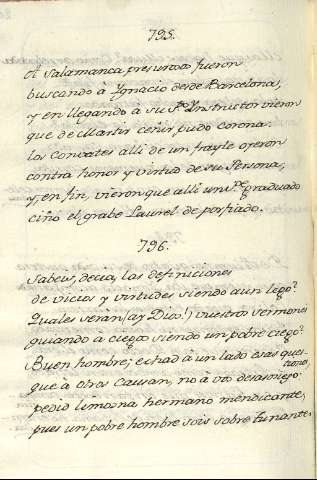 795.
A Salamanca presurosos fueron
buscando à Ygnacio desde Barcelona,
y en llegando à su Pe Ynstructor vieron
que de Martir ceñir pudo corona:
los Convates alli de un frayle oyeron
contra honor y virtud de su Persona,
y, en fin, vieron que alli un Pe graduado
ciño el grabe Laurel de porfiado.
796.
Sabeis, decia, las definiciones
de vicios y virtudes siendo aun lego?
Quales seràn (ay Dios!) vuestros Sermones
guiando à ciegos siendo un pobre ciego?
Buen hombre; echad à un lado esas questiones,
que à otros causan, no à vos desasosiego:
pedid limosna hermano mendicante,
pues un pobre hombre sois sobre tunante.